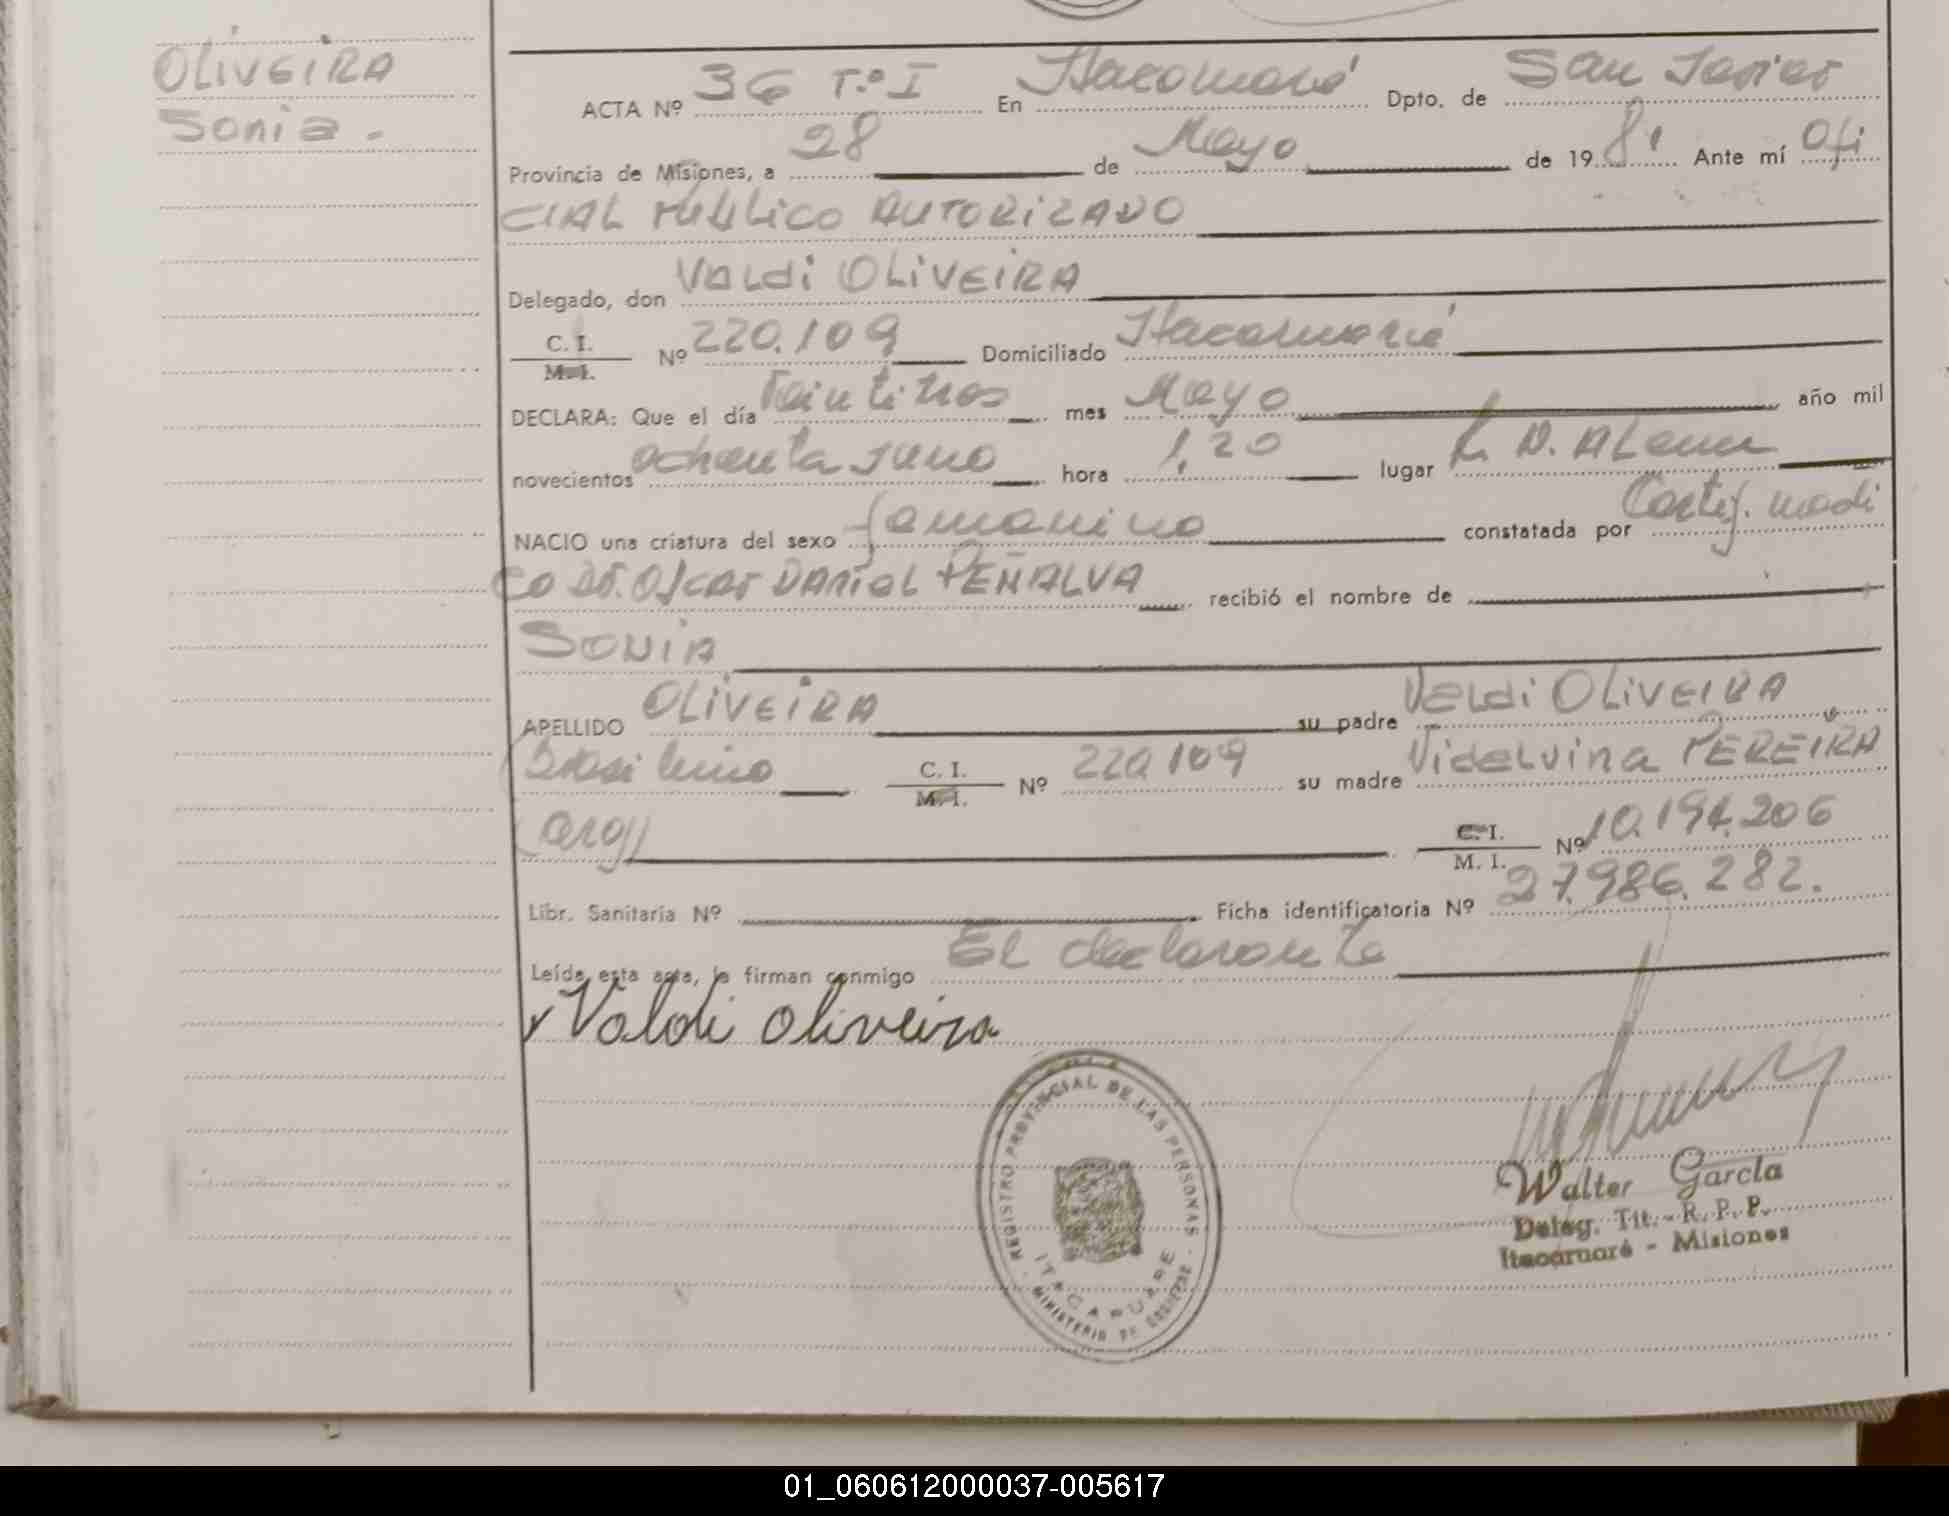 OLIVEIRA
Sonia.
ACTA Nº 36 T.º I En Itacaruaré Dpto. de San Javier
Provincia de Misiones, a 28 de Mayo de 1981 Ante mí Ofi
CIAL PUBLICO AUTORIZADO
Delegado, don VALDI OLIVEIRA
C. I.
M. I.
Nº 220.109 Domiciliado Itacaruaré
DECLARA: Que el día Veintitres mes Mayo año mil
novecientos ochenta y uno hora 1,20 lugar L. N. ALem
NACIO una criatura del sexo femenino constatada por Certif. medi
co Dr. Oscar DANIEL PEÑALVA recibió el nombre de
SONIA
APELLIDO OLIVEIRA su padre VALDI OLIVEIRA
(brasilero C. I.
M. I.
Nº 220.109 su madre Videlvina PEREIRA
(arg) C. I.
M. I.
Nº 10.194.206
Libr. Sanitaria Nº Ficha identificatoria Nº 27.986.282.
Leída esta acta, la firman conmigo El declarante
Valdi Oliveira
REGISTRO PROVINCIAL DE LAS PERSONAS
ITACARUARE
MINISTERIO DE GOBIERNO
Walter García
Deleg. Tit. - R. P. P.
Itacaruaré - Misiones
01_060612000037-005617